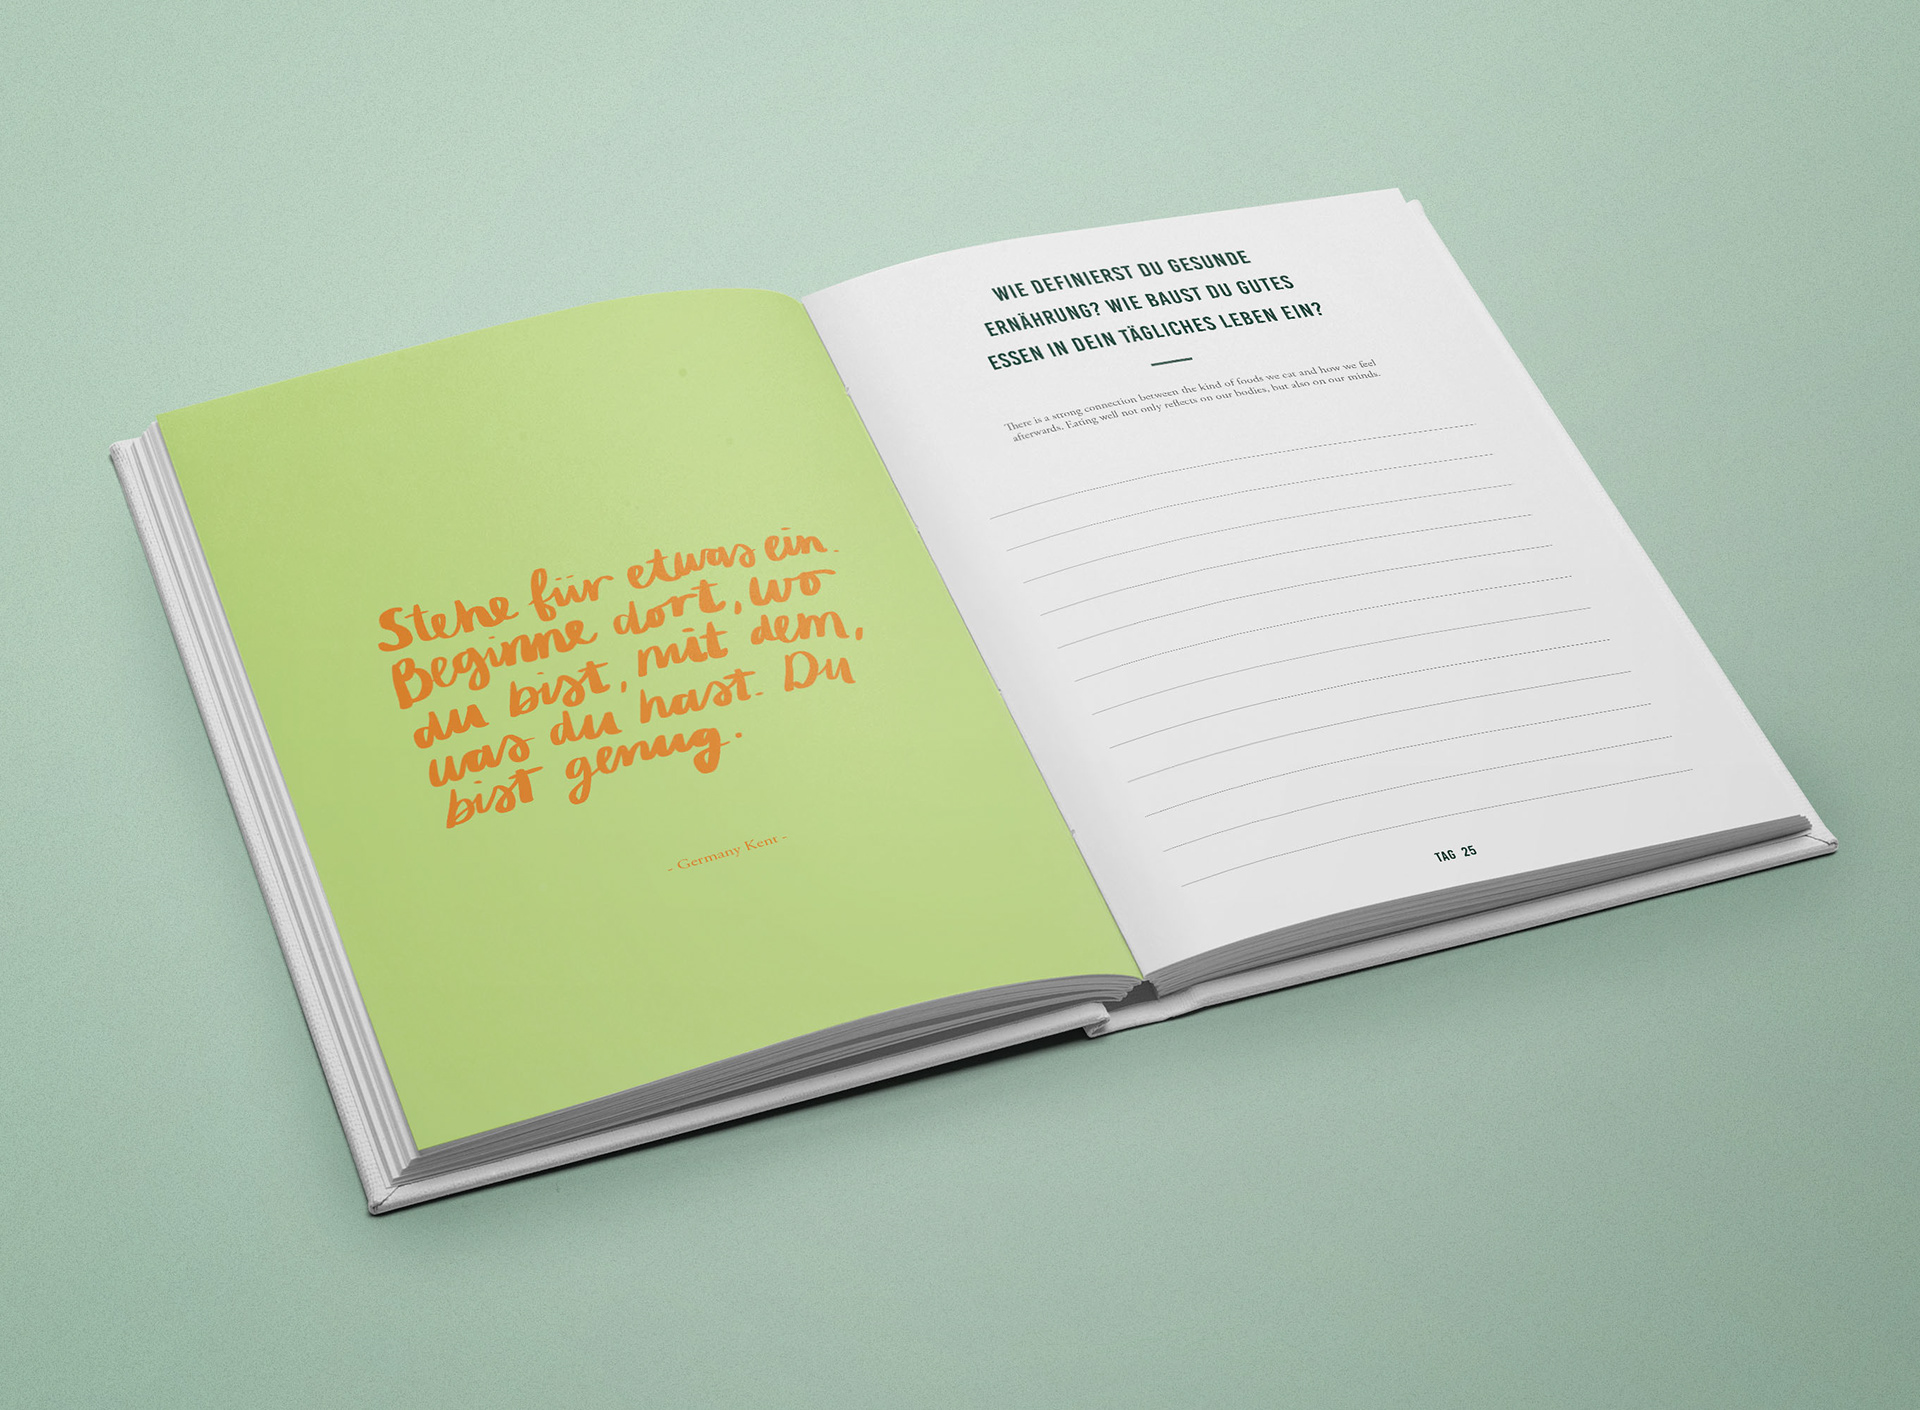 Stehe für etwas ein.
Beginne dort, wo
du bist, mit dem,
was du hast. Du
bist genug.
- Germany Kent -
WIE DEFINIERST DU GESUNDE
ERNÄHRUNG? WIE BAUST DU GUTES
ESSEN IN DEIN TÄGLICHES LEBEN EIN?
There is a strong connection between the kind of foods we eat and how we feel
afterwards. Eating well not only reflects on our bodies, but also on our minds.
TAG 25